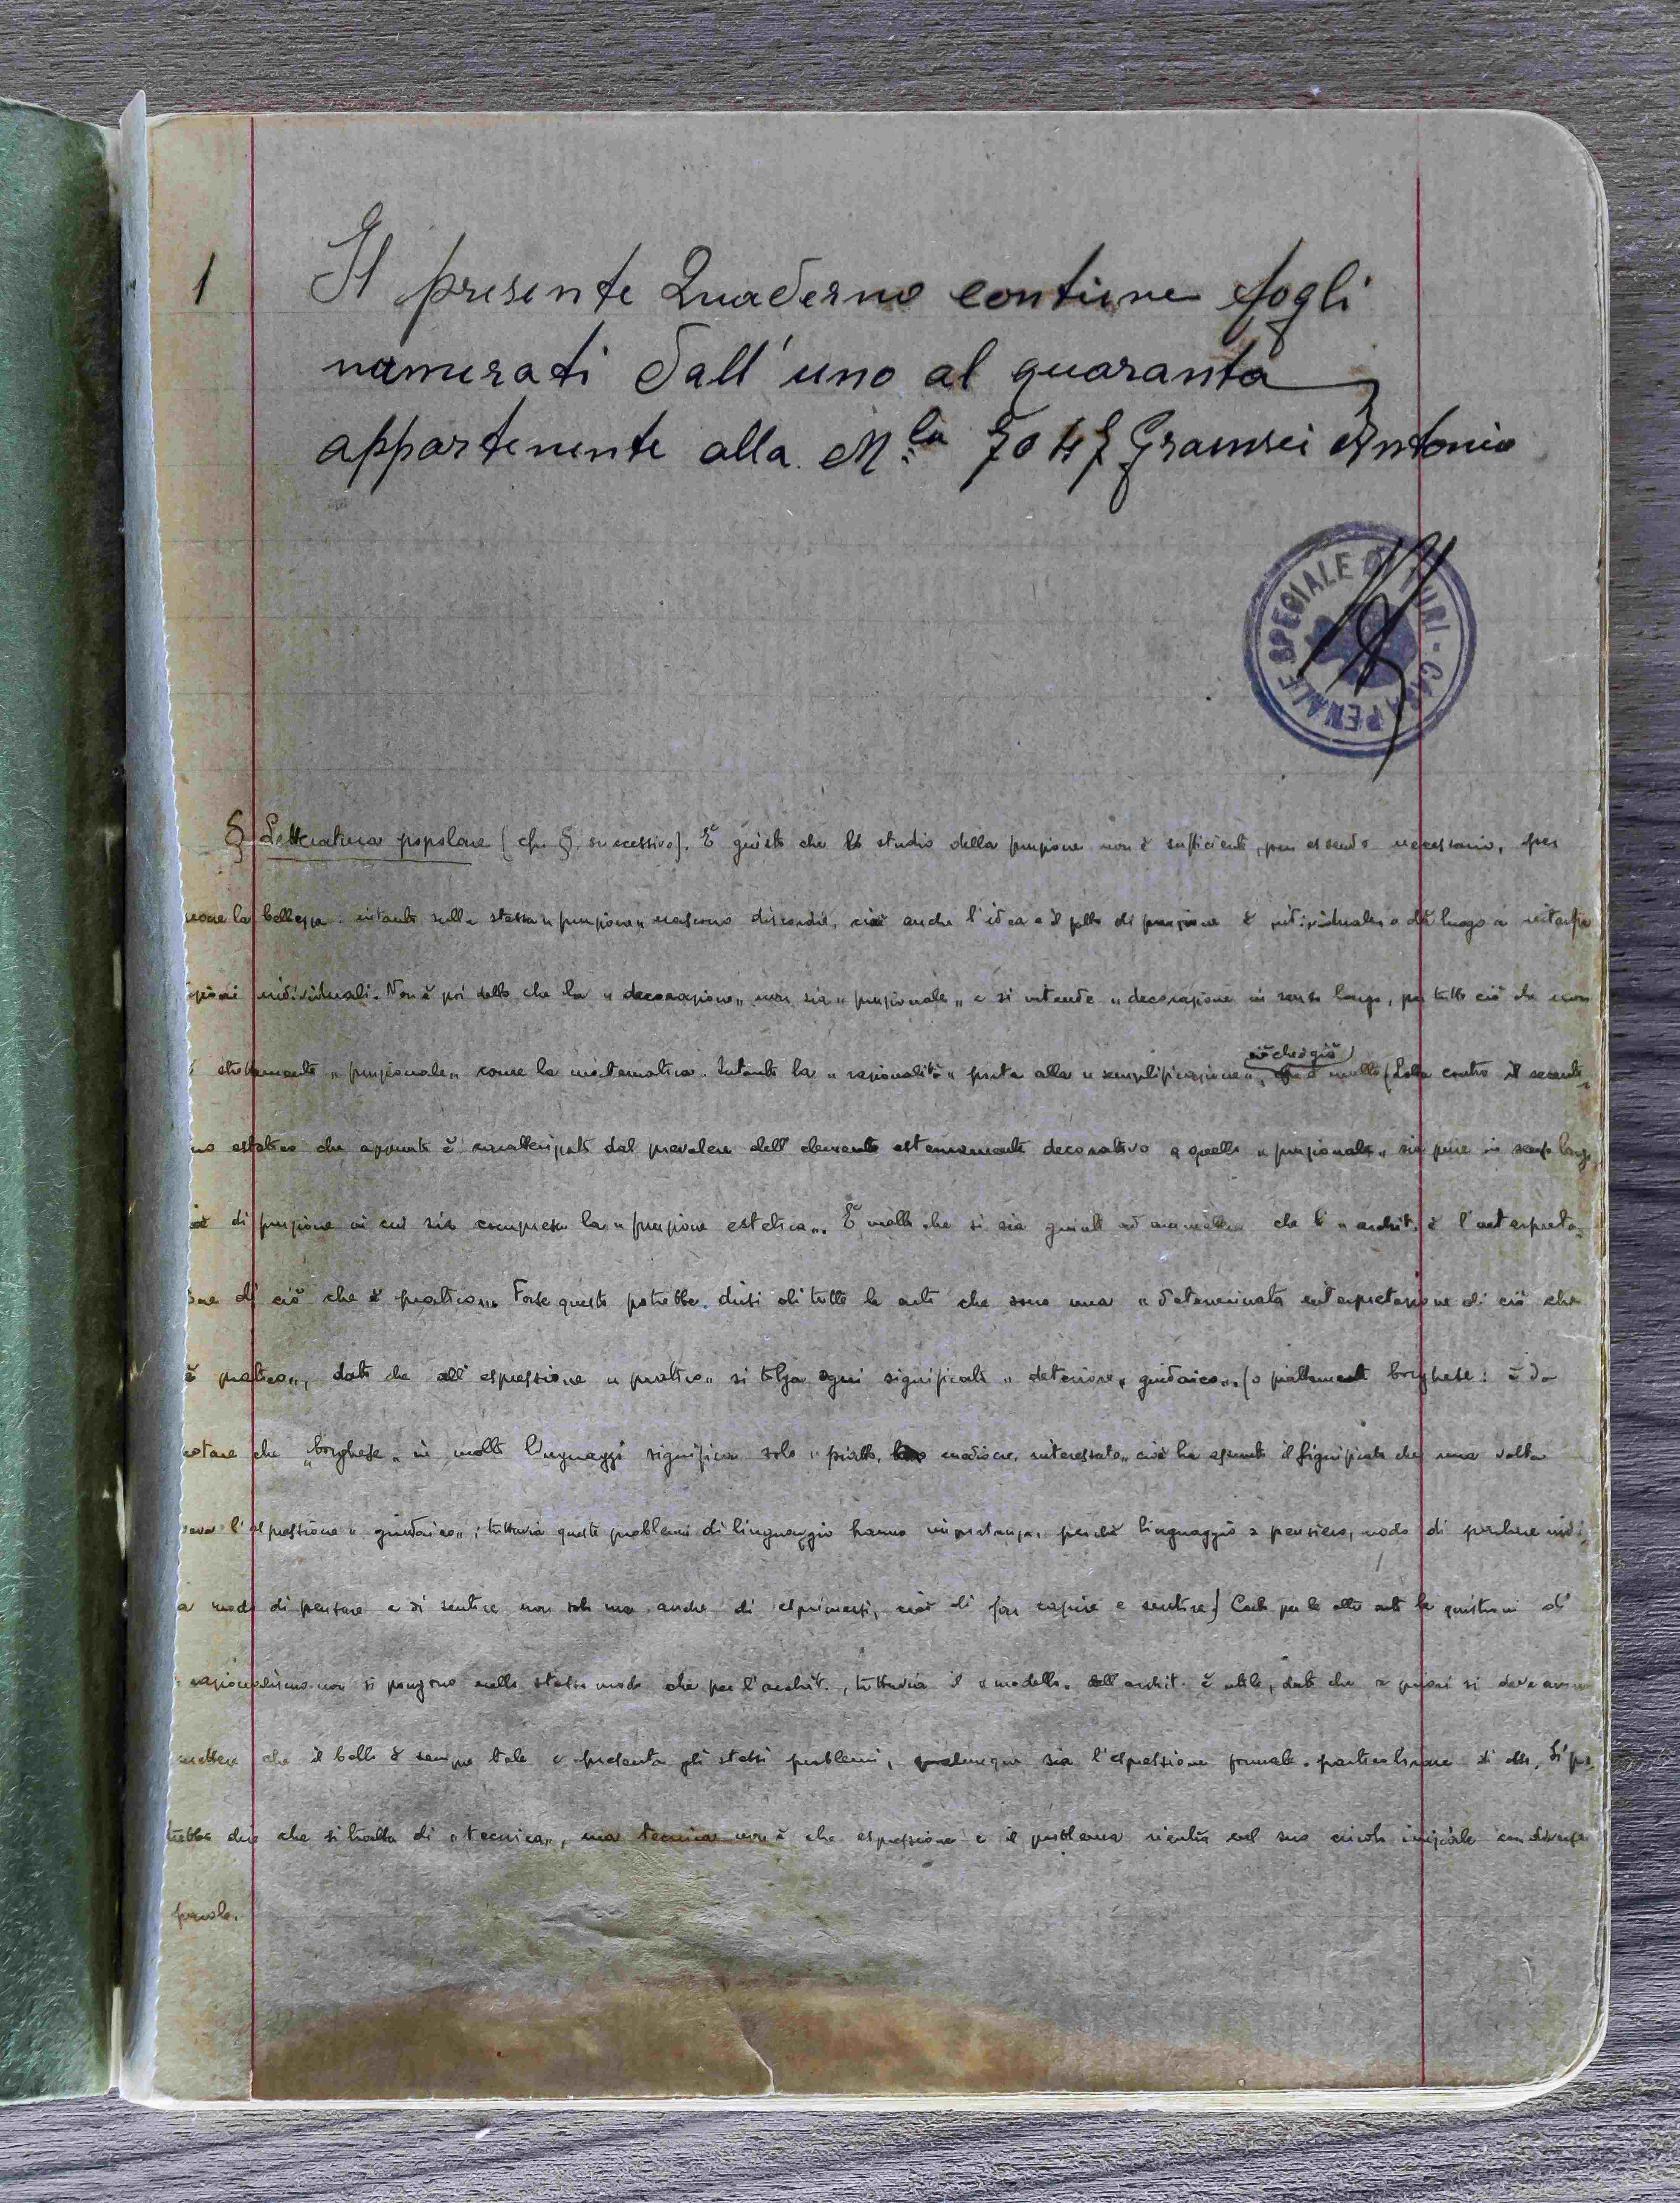 1
Il presente Quaderno contiene fogli
numerati dall'uno al quaranta
appartenente alla M.la 7047 Gramsci Antonio
CASA PENALE SPECIALE DI TURI
§ Letteratura popolare (cfr § successivo). È giusto che lo studio della funzione non è sufficiente, pur essendo necessario, per
la bellezza: intanto sulla stessa „funzione„ nascono discordie, cioè anche l'idea e il fatto di funzione è individuale o dà luogo a interpre
individuali. Non è poi detto che la „decorazione„ non sia „funzionale„ e si intende „decorazione in senso largo, per tutto ciò che non
strettamente „funzionale„ come la matematica. Intanto la „razionalità„ porta alla „semplificazione„, ciò che è già molto (Lotta contro il secenti
estetico che appunto è caratterizzato dal prevalere dell'elemento esternamente decorativo a quello „funzionale„ sia pure in senso largo,
di funzione in cui sia compresa la „funzione estetica„. È molto che si sia giunti ad ammettere che l'„archit. è l'interpreta-
di ciò che è pratico„. Forse questo potrebbe dirsi di tutte le arti che sono una „determinata interpretazione di ciò che
è pratico„, dato che all'espressione „pratico„ si tolga ogni significato „deteriore, giudaico„ (o piattamente borghese: è da
notare che „borghese„ in molti linguaggi significa solo „piatto, mediocre, interessato„ cioè ha assunto il significato che una volta
l'espressione „giudaico„; tuttavia questi problemi di linguaggio hanno importanza, perché linguaggio = pensiero, modo di parlare indi-
ca modo di pensare e di sentire non solo ma anche di esprimersi, cioè di far capire e sentire.) Certo per le altre arti le quistioni di
razionalismo non si pongono nello stesso modo che per l'archit., tuttavia il „modello„ dell'archit. è utile, dato che a priori si deve am-
mettere che il bello è sempre tale e presenta gli stessi problemi, qualunque sia l'espressione formale particolare di esso. Si po-
trebbe dire che si tratta di „tecnica„, ma tecnica non è che espressione e il problema rientra nel suo circolo iniziale con diverse
parole.